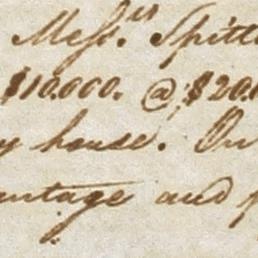 Mess.rs Spitt
$10.000. @ $20.
y house. On
antage and p